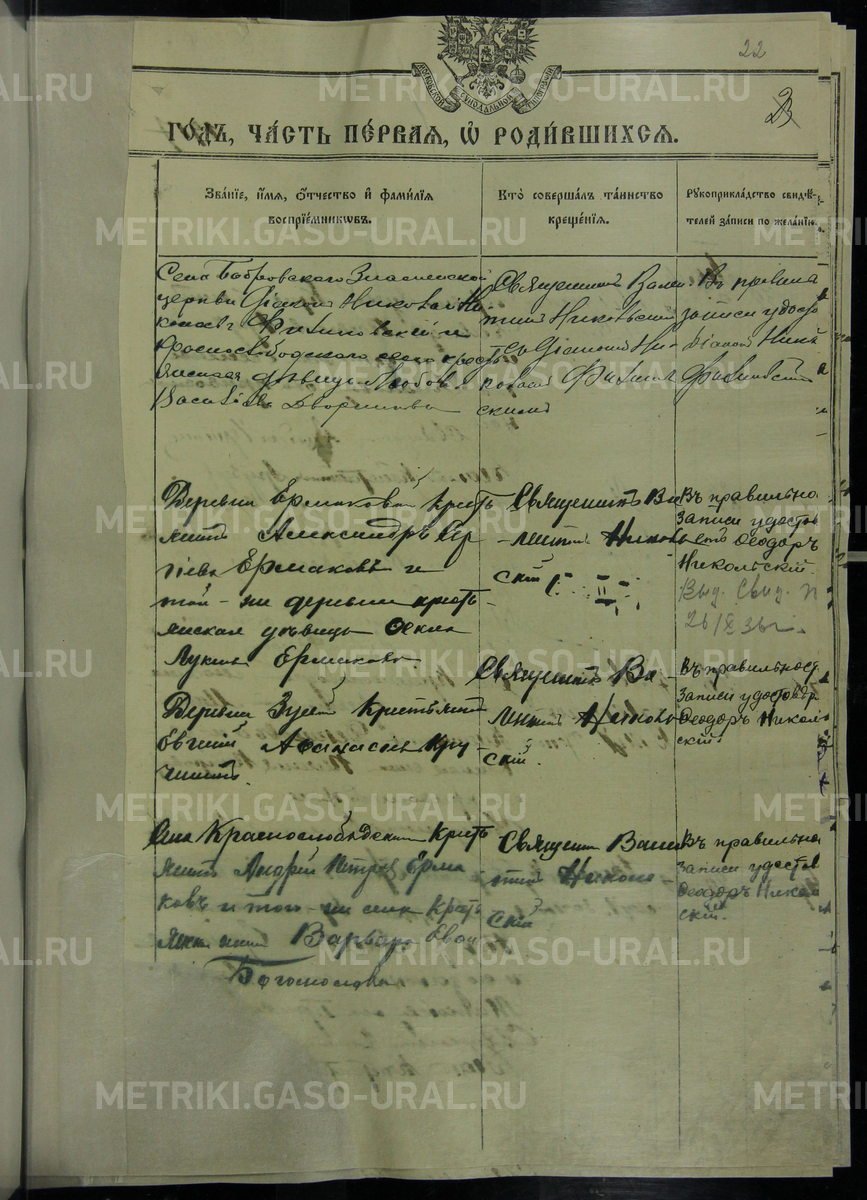 22
23
МОСКОВСКОЙ СѴНОДАЛЬНОЙ ТИПОГРАФІИ
ГО́ДЪ, ЧА́СТЬ ПЕ́РВАѦ, Ѡ҆ РОДИ́ВШИХСѦ.
Зва́нїе, и҆́мѧ, ѻ҆́тчество и҆ фами́лїѧ
воспрїе́мникѡвъ.
Кто̀ соверша́лъ та́инство
креще́нїѧ.
Рꙋкоприкла́дство свидѣ́-
телей за́писи по жела́нїю.
Села Бобровскаго Знаменской
церкви Діаконъ Николай Ни-
колаевъ и
Краснослободскаго села кресть
янская дѣвица Любовь
Васильева Дворникова
Священникъ Вален-
тинъ Никольскій
съ Діакономъ Ни-
колаемъ
скимъ
Въ правиль
записи удосто
Діаконъ Никол
Деревни Ермаковой кресть
янинъ Александръ Сер
гіевъ Ермаковъ и
той-же деревни кресть-
янская дѣвица Фекла
Лукина Ермакова
Священникъ Ва
-лентинъ Николь
скій
Въ правильно
записи удостов
Ѳеодоръ
Никольскій.
Выд. Свид. №
Деревни Зуевой Крестьянинъ
Евгеній Афанасьевъ Кру-
чининъ.
Священникъ Ва-
лентинъ Николь
скій.
Въ правильност
записи удостовѣр
Ѳеодоръ Николь
скій
Села Краснослободскаго Кресть
янинъ Андрей Петровъ Ерма
ковъ и того-же села Кресть
Варвара
Богословъ
Священникъ Вален
тинъ Николь-
скій
Въ правильно
записи удостов
Ѳеодоръ Николь
скій.
METRIKI.GASO-URAL.RU